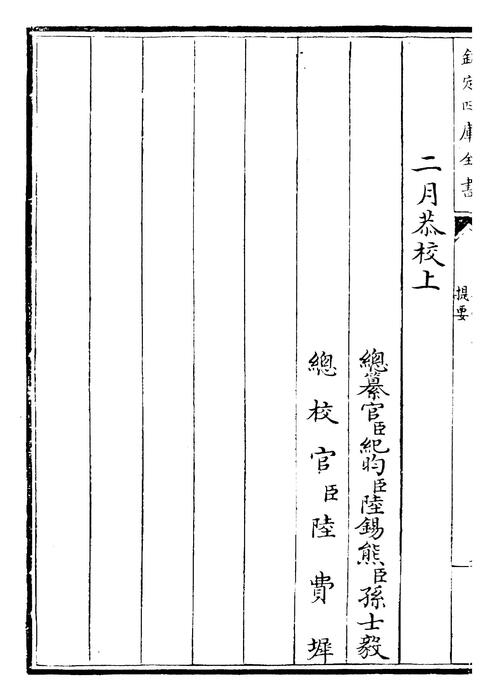 欽定四庫全書
提要
二月恭校上
總纂官臣紀昀臣陸錫熊臣孫士毅
總校官臣陸費墀